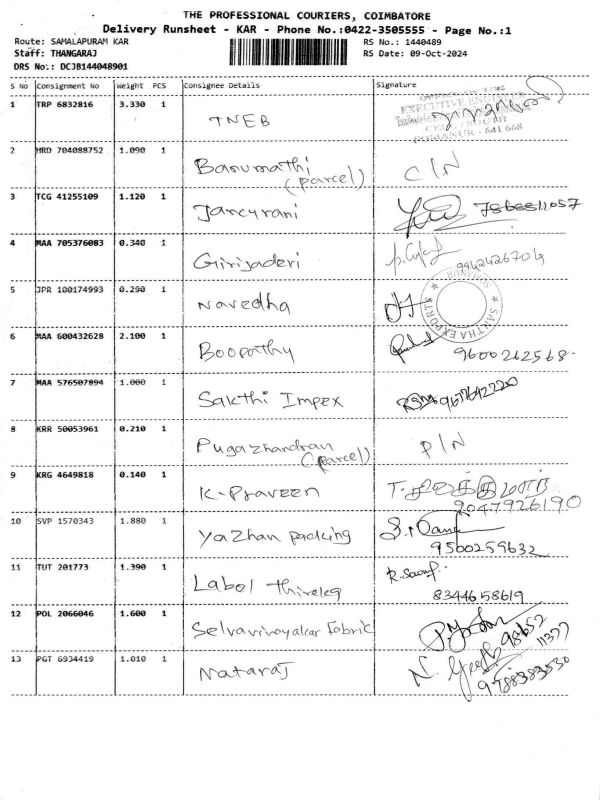 THE PROFESSIONAL COURIERS, COIMBATORE
Delivery Runsheet - KAR - Phone No.:0422-3505555 - Page No.:1
Route: SAMALAPURAM KAR
RS No.: 1440489
Staff: THANGARAJ
RS Date: 09-Oct-2024
DRS No.: DCJB144048901
S No Consignment No Weight PCS Consignee Details Signature
1 TRP 6832816 3.330 1 TNEB
EXECUTIVE
- 641 668
2 MRD 704088752 1.090 1 Banumathi C/N
(parcel)
3 TCG 41255109 1.120 1 Jancyrani
4 MAA 705376083 0.340 1 Girijaderi
5 JPR 100174993 0.290 1 Navedha
SANTHA EXPORTS
6 MAA 600432628 2.100 1 Boopathy 9600262568
7 MAA 576507894 1.000 1 Sakthi Impex
8 KRR 50053961 0.210 1 Pugazhandran P/N
(parcel)
9 KRG 4649818 0.140 1 K-Praveen
9047926190
10 SVP 1570343 1.880 1 Yazhan packing
9500259632
11 TUT 201773 1.390 1 Label
8344658619
12 POL 2066046 1.600 1 Selvavinayakar Fabric
98652
11377
13 PGT 6934419 1.010 1 Nataraj
9788383530